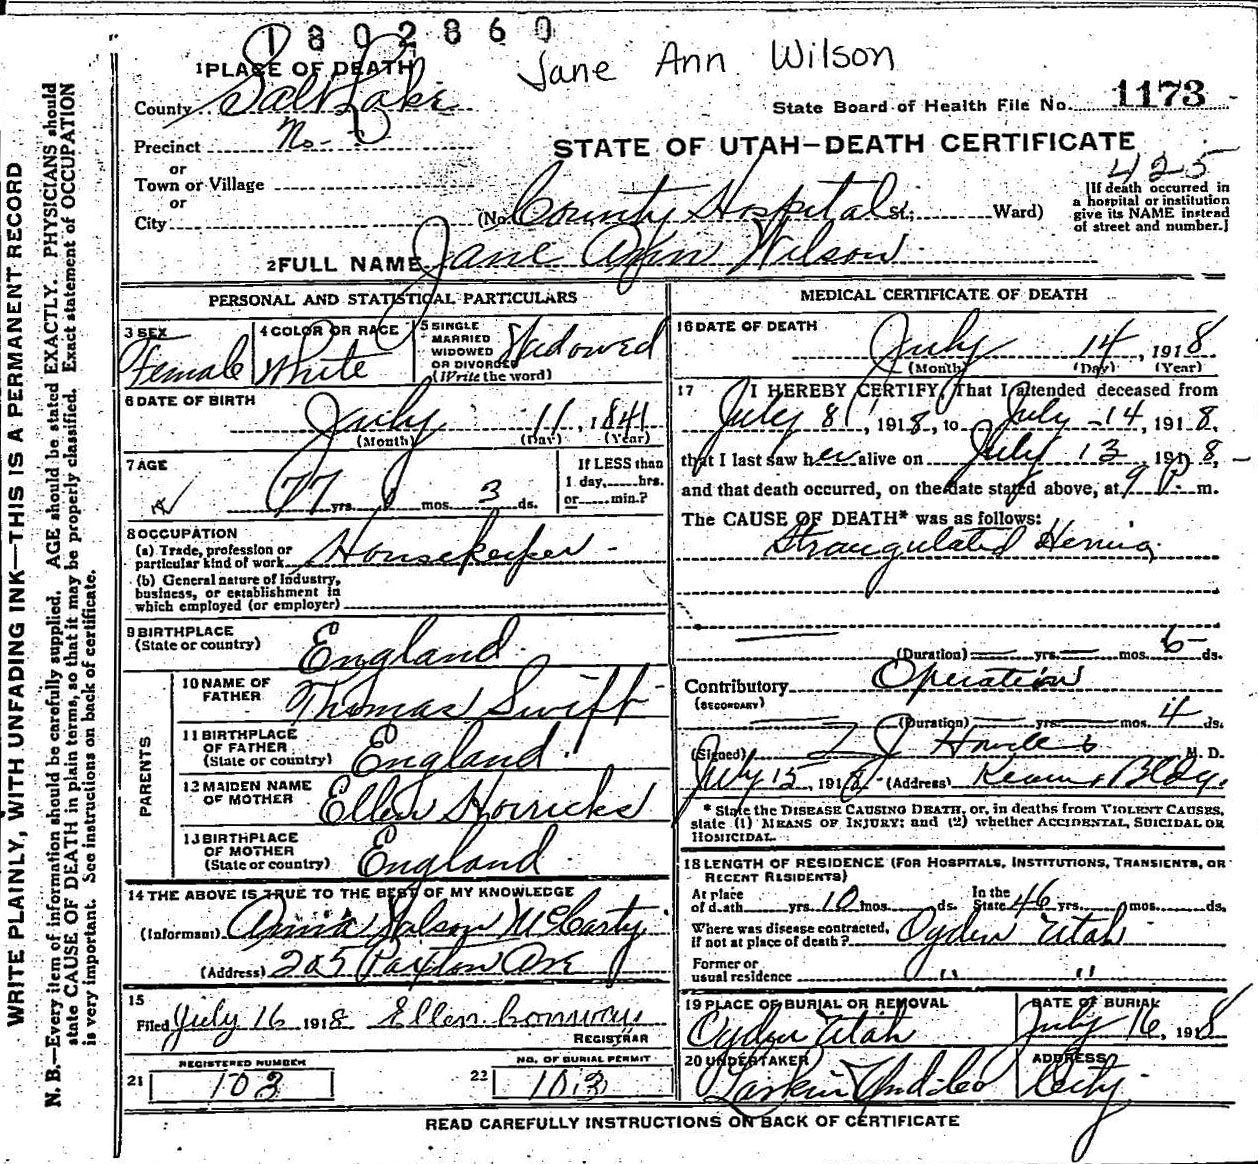 1802860
Jane Ann Wilson
1 PLACE OF DEATH
County Salt Lake
State Board of Health File No. 1173
Precinct No-
STATE OF UTAH—DEATH CERTIFICATE
or
425
Town or Village
or
City
(No. County Hospital St.; Ward)
[If death occurred in
a hospital or institution
give its NAME instead
of street and number.]
2 FULL NAME Jane Ann Wilson
PERSONAL AND STATISTICAL PARTICULARS
3 SEX
Female
4 COLOR OR RACE
White
5 SINGLE
MARRIED
WIDOWED
OR DIVORCED
(Write the word)
Widowed
6 DATE OF BIRTH
July 11, 1841
(Month) (Day) (Year)
7 AGE
77 yrs. 0 mos. 3 ds.
If LESS than
1 day, hrs.
or min.?
8 OCCUPATION
(a) Trade, profession or
particular kind of work Housekeeper
(b) General nature of Industry,
business, or establishment in
which employed (or employer)
9 BIRTHPLACE
(State or country) England
PARENTS
10 NAME OF
FATHER Thomas Swift
11 BIRTHPLACE
OF FATHER
(State or country) England
12 MAIDEN NAME
OF MOTHER Ellen Horricks
13 BIRTHPLACE
OF MOTHER
(State or country) England
14 THE ABOVE IS TRUE TO THE BEST OF MY KNOWLEDGE
(Informant) Anna Wilson McCarty
(Address) 205 Paxton Ave
15
Filed July 16, 1918 Ellen Conway
REGISTRAR
REGISTERED NUMBER
21 103
NO. OF BURIAL PERMIT
22 103
MEDICAL CERTIFICATE OF DEATH
16 DATE OF DEATH
July 14, 1918
(Month) (Day) (Year)
17 I HEREBY CERTIFY, That I attended deceased from
July 8, 1918, to July 14, 1918,
that I last saw her alive on July 13 1918,
and that death occurred, on the date stated above, at 9 P. m.
The CAUSE OF DEATH* was as follows:
Strangulated Hernia
(Duration) yrs. mos. 6 ds.
Contributory Operation
(SECONDARY)
(Duration) yrs. mos. 4 ds.
(Signed) M. D.
July 15 1918 (Address) Kearns Bldg.
* State the DISEASE CAUSING DEATH, or, in deaths from VIOLENT CAUSES,
state (1) MEANS OF INJURY; and (2) whether ACCIDENTAL, SUICIDAL OR
HOMICIDAL.
18 LENGTH OF RESIDENCE (FOR HOSPITALS, INSTITUTIONS, TRANSIENTS, OR
RECENT RESIDENTS)
At place
of death yrs. 10 mos. ds.
In the
State 46 yrs. mos. ds.
Where was disease contracted,
if not at place of death? Ogden Utah
Former or
usual residence " "
19 PLACE OF BURIAL OR REMOVAL
Ogden Utah
DATE OF BURIAL
July 16, 1918
20 UNDERTAKER
Larkin Und Co
ADDRESS
City
READ CAREFULLY INSTRUCTIONS ON BACK OF CERTIFICATE
WRITE PLAINLY, WITH UNFADING INK—THIS IS A PERMANENT RECORD
N. B.—Every item of information should be carefully supplied. AGE should be stated EXACTLY. PHYSICIANS should
state CAUSE OF DEATH in plain terms, so that it may be properly classified. Exact statement of OCCUPATION
is very important. See instructions on back of certificate.